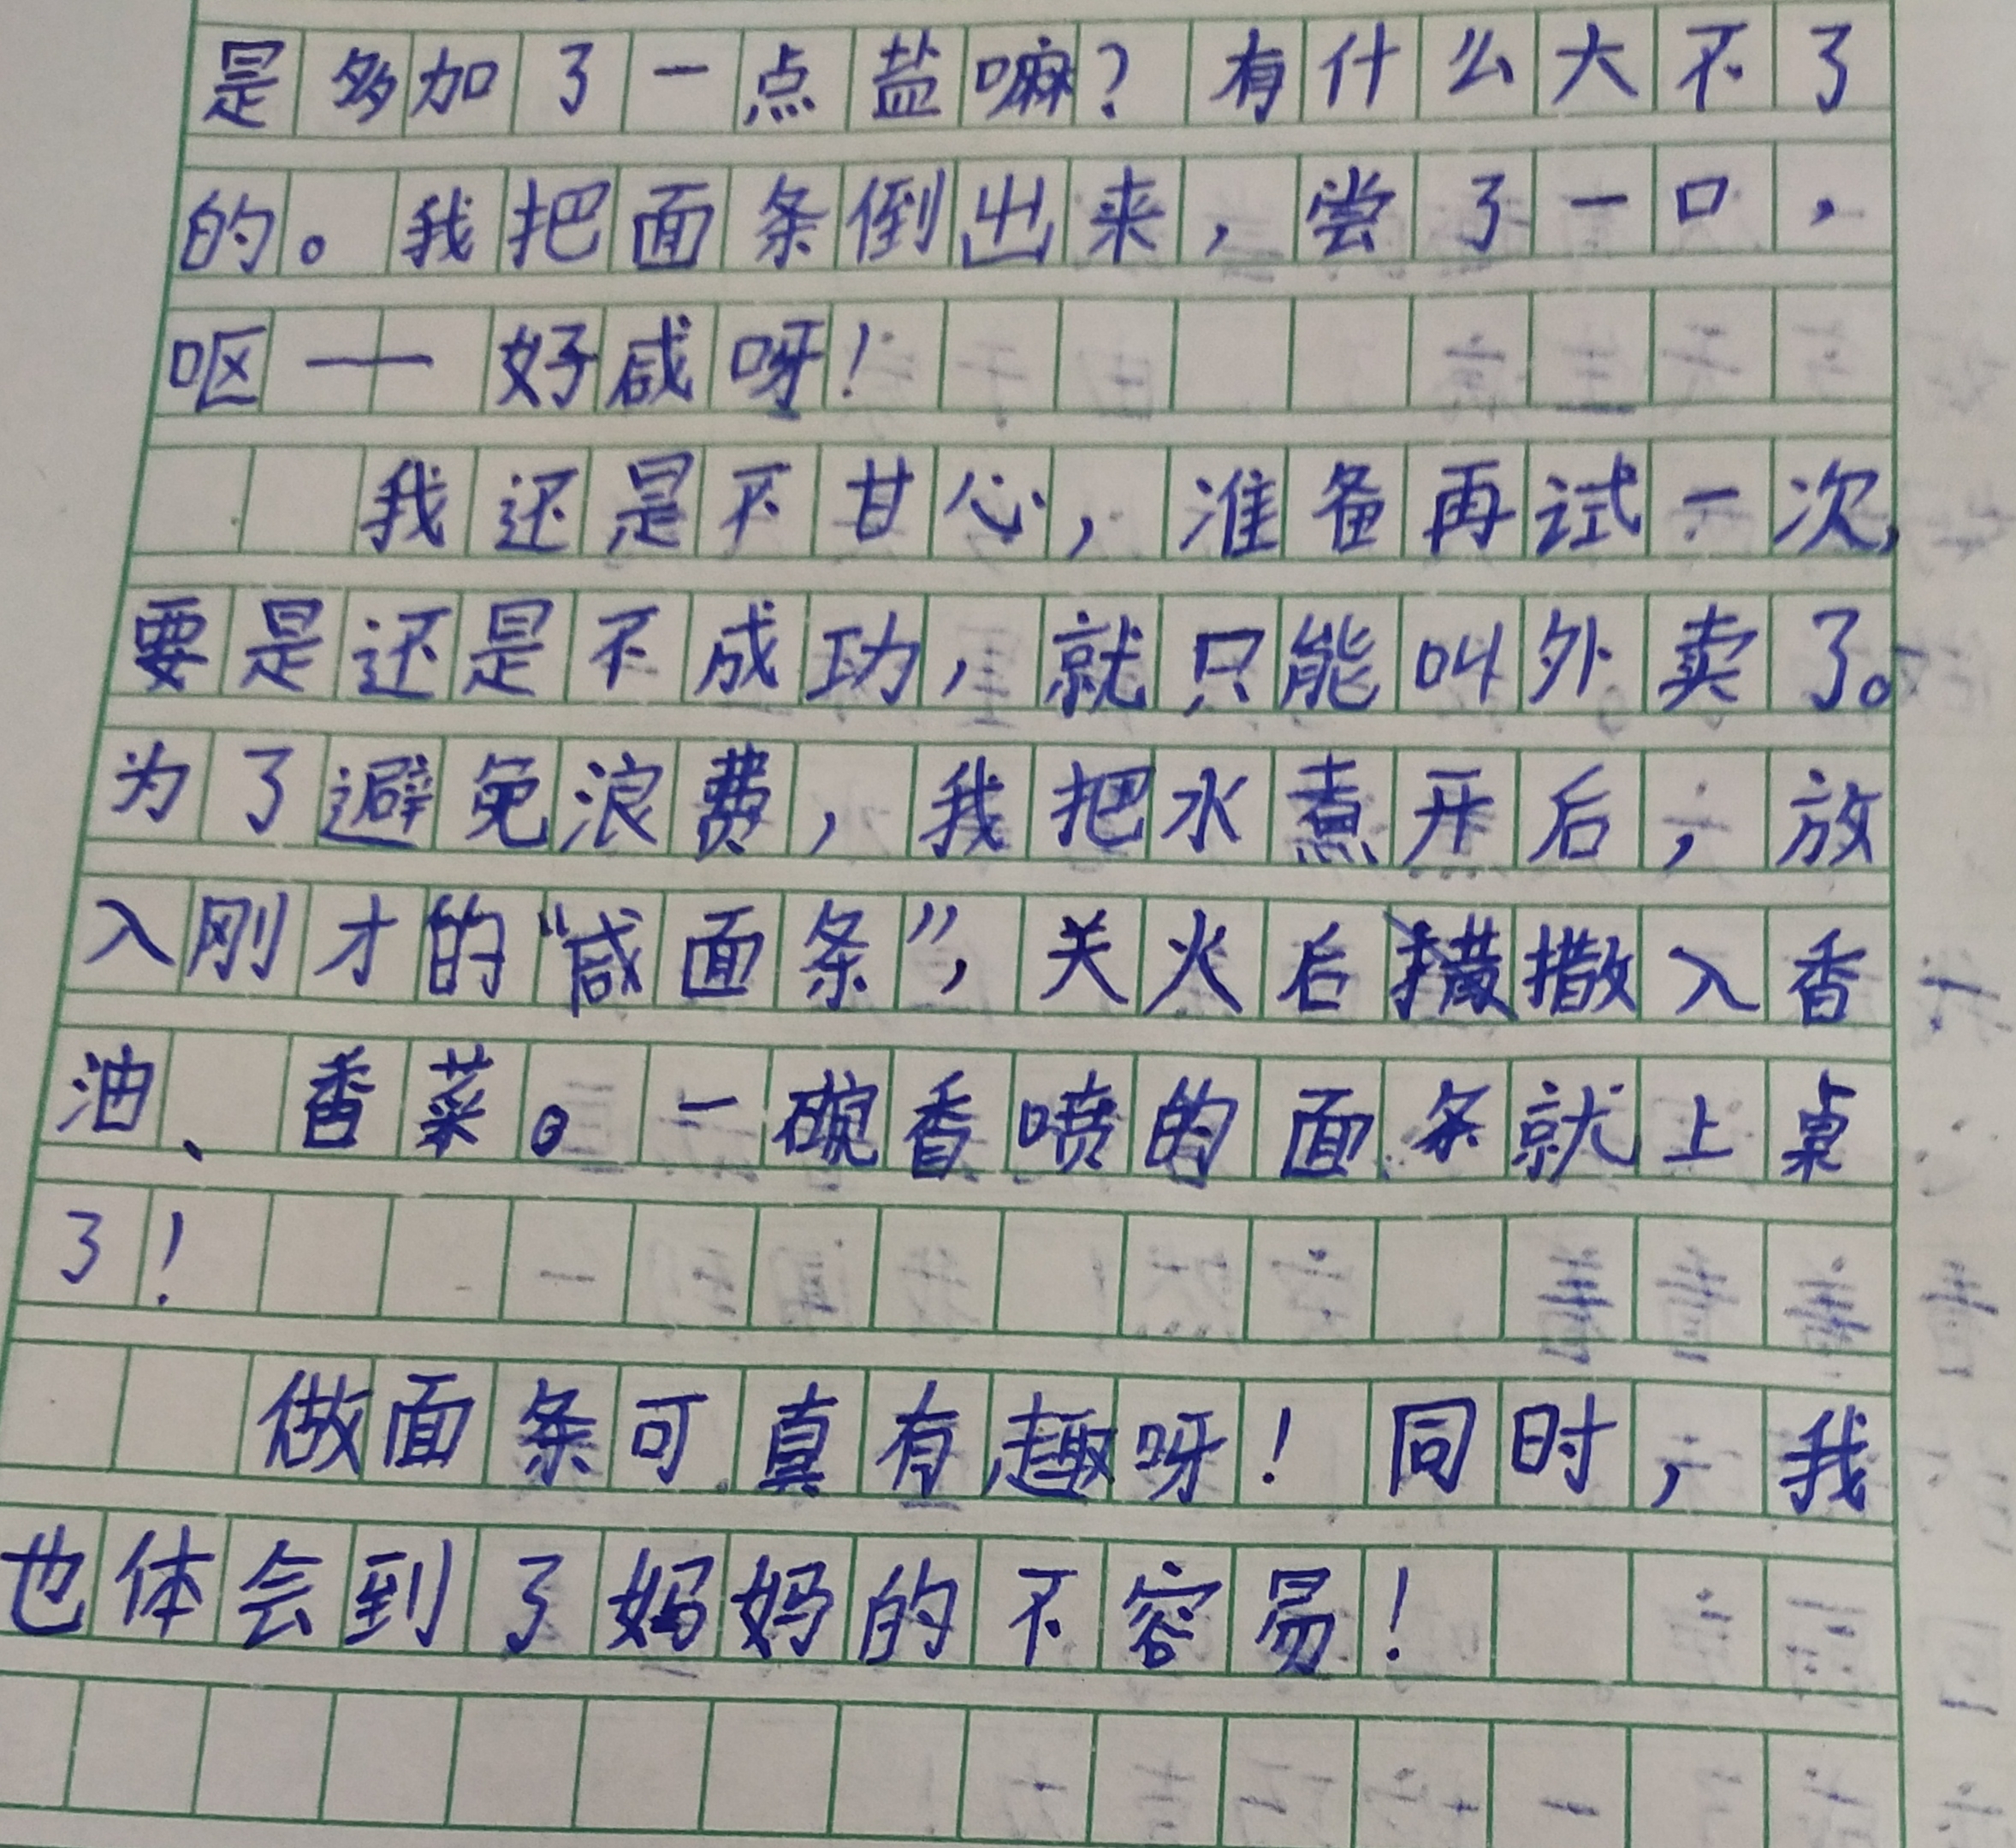 是多加了一点盐嘛？有什么大不了
的。我把面条倒出来，尝了一口，
呕——好咸呀！
我还是不甘心，准备再试一次，
要是还是不成功，就只能叫外卖了。
为了避免浪费，我把水煮开后，放
入刚才的“咸面条”，关火后撒入香
油、香菜。一碗香喷的面条就上桌
了！
做面条可真有趣呀！同时，我
也体会到了妈妈的不容易！